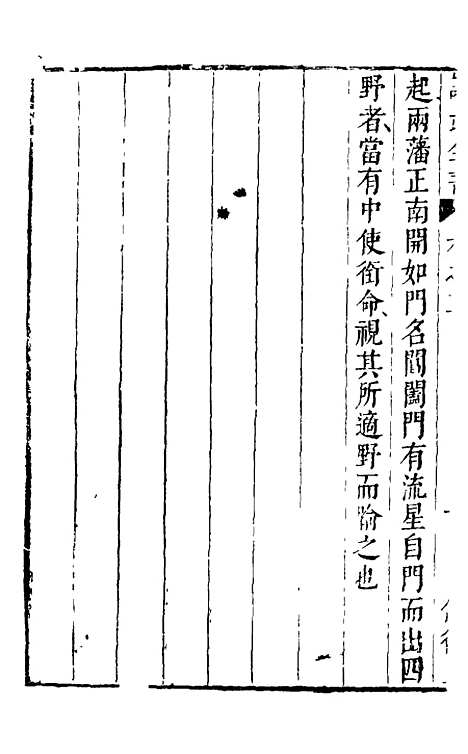 起兩藩正南開如門名閶闔門有流星自門而出四
野者、當有中使銜命、視其所適野而論之也